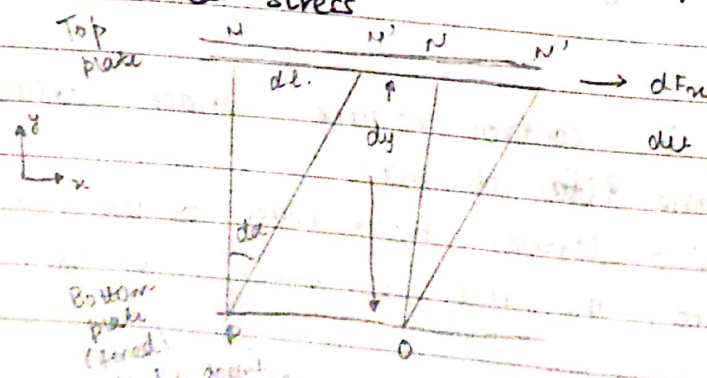 stress
Top
plate
M M' N N'
dl.
dFx
dy
du
y
x
dα
Bottom
plate
(fixed)
P
O